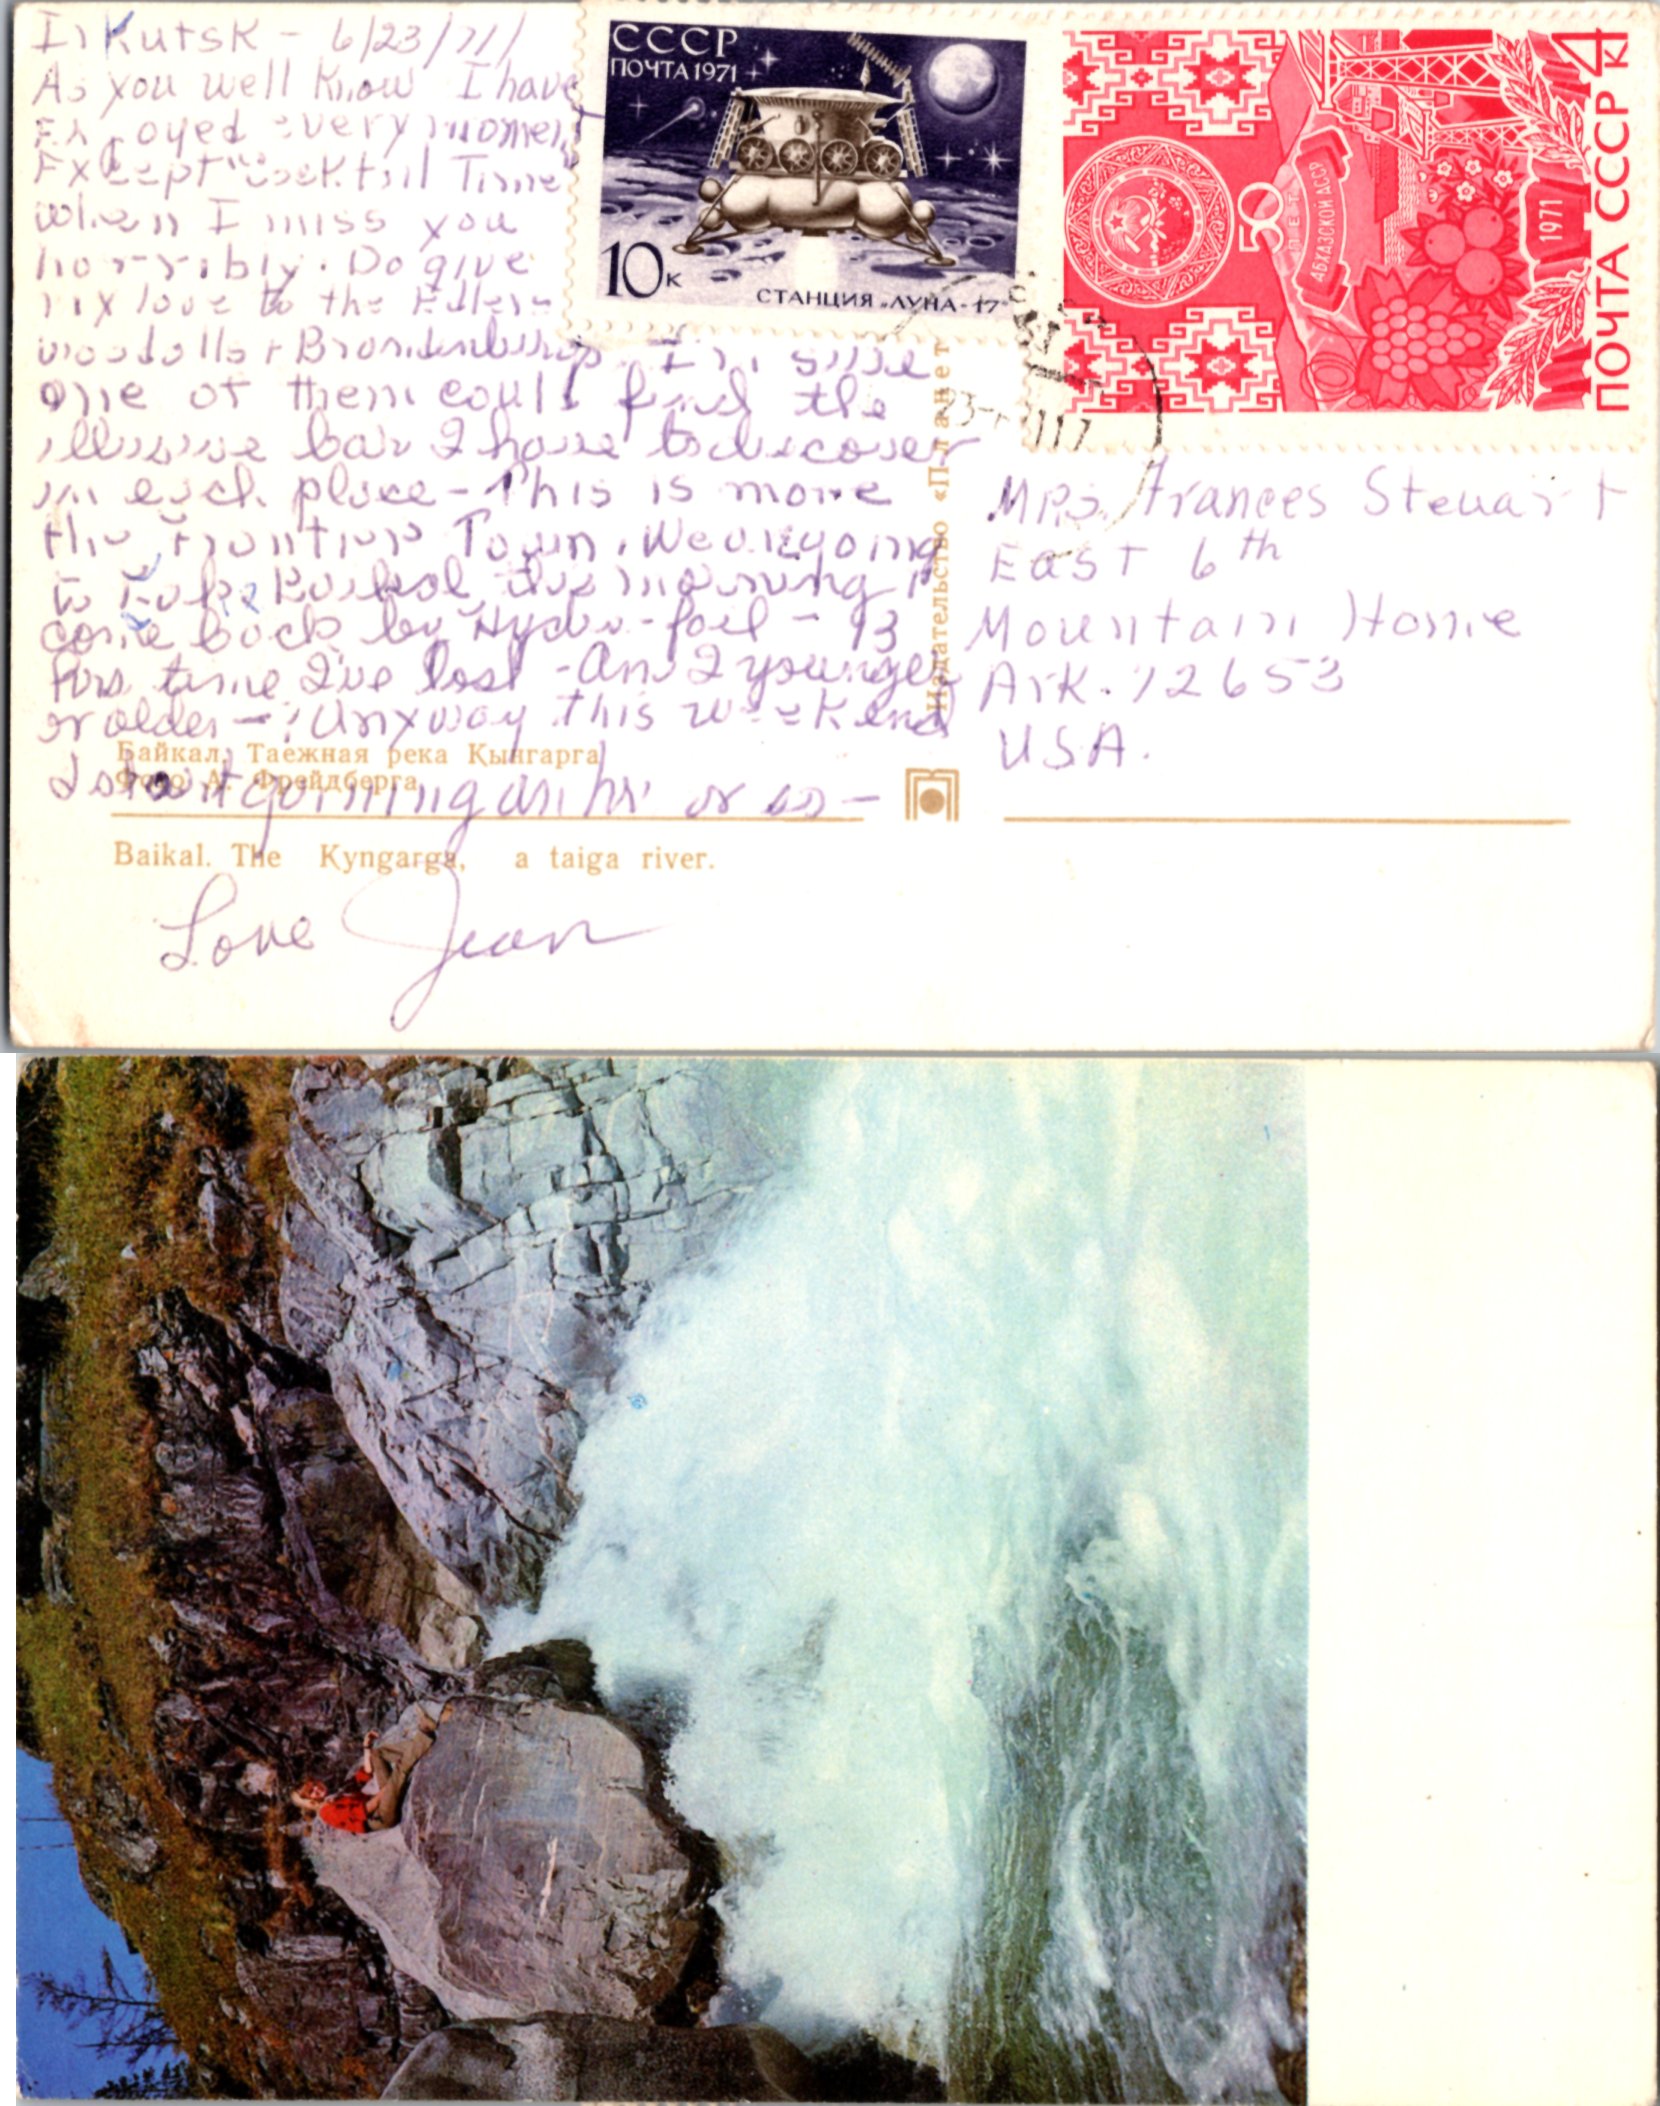 Irkutsk - 6/23/71/
As you well know I have
Enjoyed every moment
Except "Cocktail Time"
when I miss you
horribly. Do give
my love to the Fullers
Woodalls + Brandenburgs. I'm sure
one of them could find the
illusive bar I have to discover
in each place - This is more
the Frontier Town. We are going
to Lake Baikal this morning &
come back by Hydro-foil - 13
hrs time I've lost - Am I younger
or older - ? Anyway this weekend
I start gaining an hr or so -
Love Jean
СССР
ПОЧТА 1971
10к
СТАНЦИЯ „ЛУНА-17"
4к
ПОЧТА СССР
1971
50
ЛЕТ
АБХАЗСКОЙ АССР
Издательство «Планета»
Mrs. Frances Steuart
East 6th
Mountain Home
Ark. 72653
USA.
Байкал. Таежная река Кынгарга
Фото А. Фрейдберга
Baikal. The Kyngarga, a taiga river.